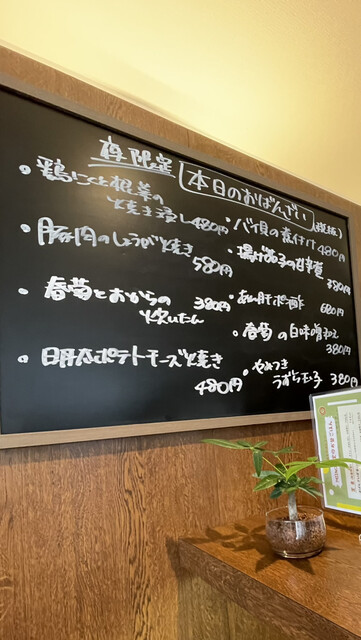 本日のおばんざい
(税抜)
・鶏にくと根菜の
焼き浸し 480円
・豚肉のしょうが焼き
580円
・春菊とおからの 380円
炊いたん
・明太ポテトチーズ焼き
480円
・バイ貝の煮付け 480円
・揚げ茄子の甘辛煮
380円
・あん肝ポン酢 680円
・春菊の白味噌和え
380円
・やみつき
うずら玉子 380円